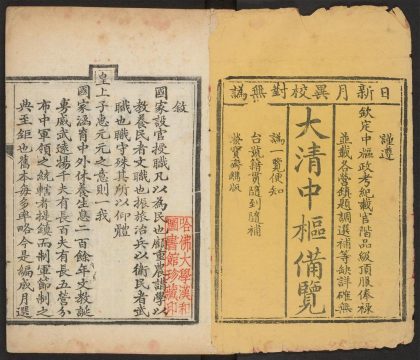 日新月異校對無訛
謹遵
欽定中樞政考紀載官階品級頂服俸祿
並載各營額題調選補等缺詳確無
訛一覽便知
台號籍貫隨到隨補
榮寶齋鐫版
大清中樞備覽
敘
國家設官授職凡以為民也顧重農講學以
教養民者文職也振旅治兵以衛民者武
職也職守殊其所以仰體
皇上子惠元元之意則一我
國家涵育中外休養生息二百餘年文教誕
敷威武遠揚千夫有長百夫有長五營分
布中軍領之統轄者提鎮而制軍節制之
典至鉅也舊本每多率略今是編歲月選
哈佛大學漢和
圖書館珍藏印